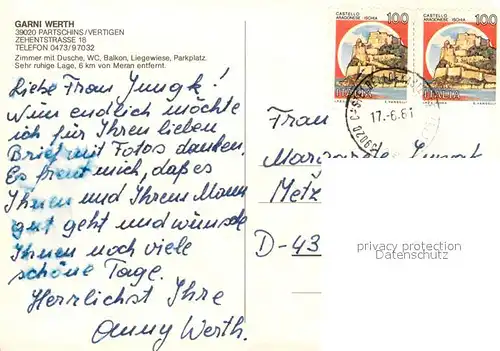 GARNI WERTH
39020 PARTSCHINS/VERTIGEN
ZEHENTSTRASSE 16
TELEFON 0473/97032
Zimmer mit Dusche, WC, Balkon, Liegewiese, Parkplatz.
Sehr ruhige Lage, 6 km von Meran entfernt.
Liebe Frau Jungk!
Nun endlich möchte
ich für Ihren lieben
Brief mit Fotos danken.
Es freut mich, daß es
Ihnen und Ihrem Mann
gut geht und wünsche
Ihnen noch viele
schöne Tage.
Herrlichst Ihre
Anny Werth.
CASTELLO ARAGONESE ISCHIA 100
ITALIA
CASTELLO ARAGONESE ISCHIA 100
ITALIA
39020
17.-6.81
Frau
Metz
D-43
privacy protection
Datenschutz